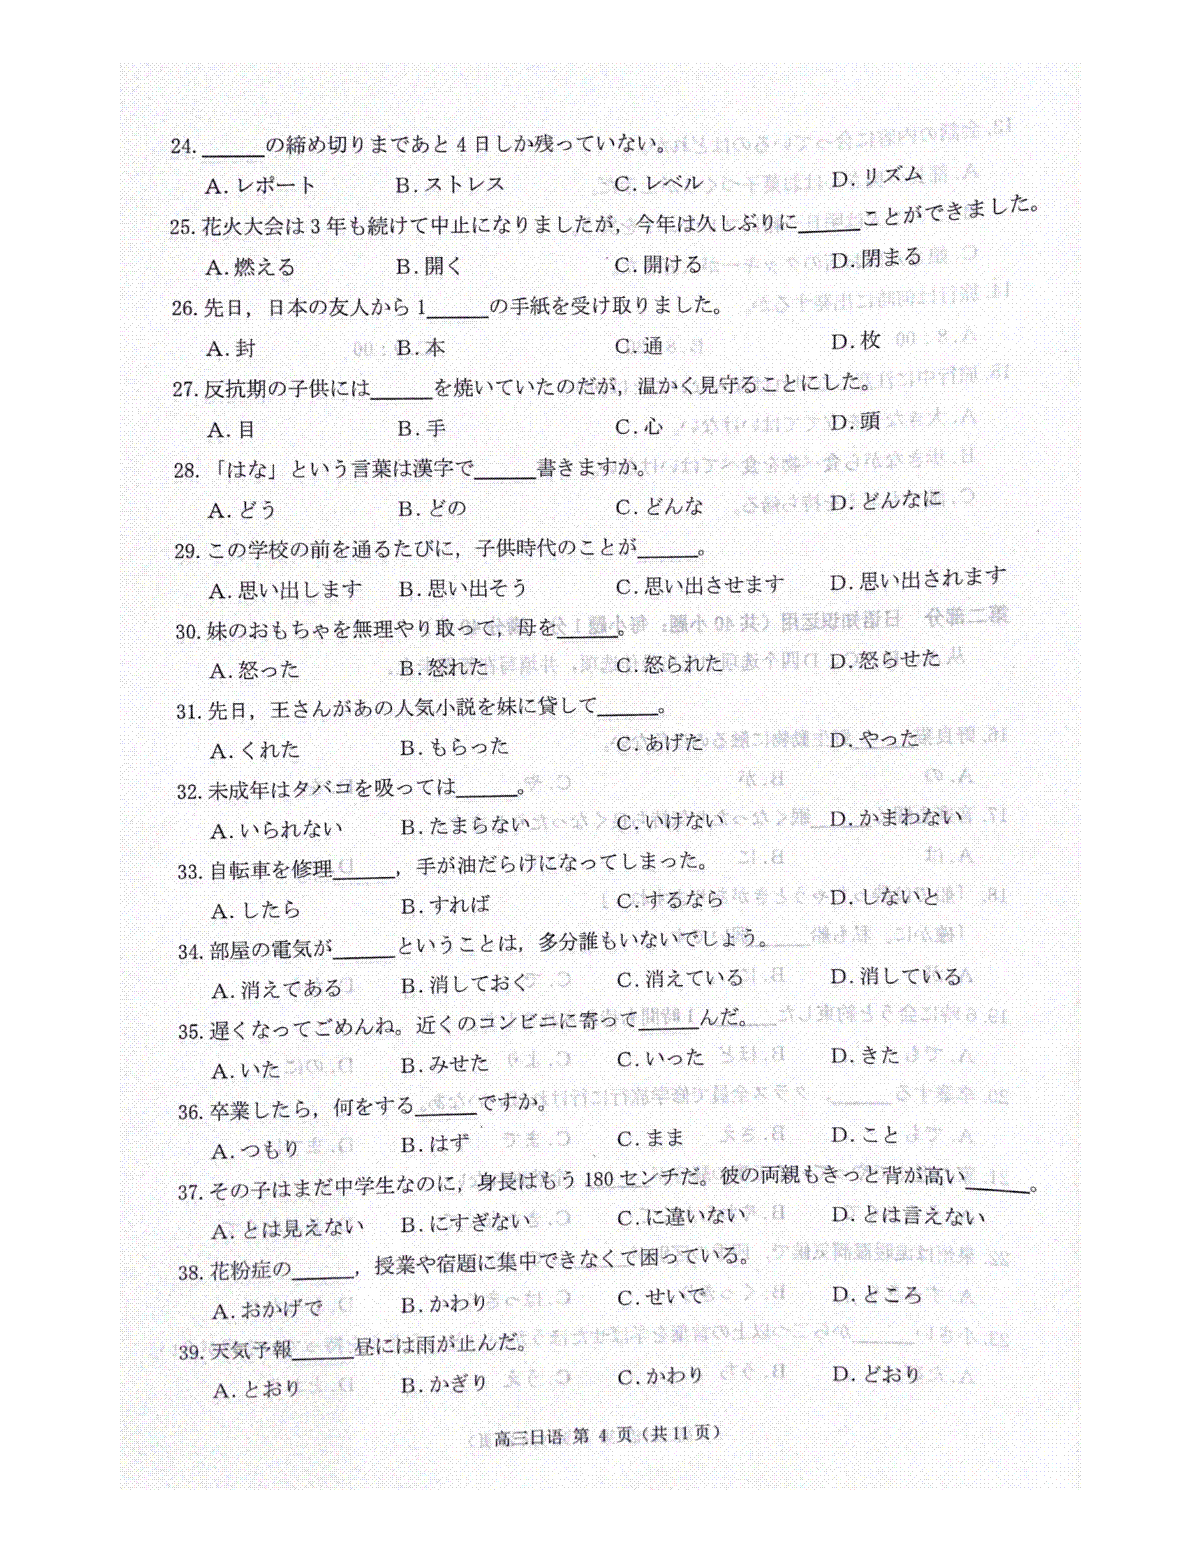 24. ______の締め切りまであと 4 日しか残っていない。
A. レポート B. ストレス C. レベル D. リズム
25. 花火大会は 3 年も続けて中止になりましたが，今年は久しぶりに______ことができました。
A. 燃える B. 開く C. 開ける D. 閉まる
26. 先日，日本の友人から 1______の手紙を受け取りました。
A. 封 B. 本 C. 通 D. 枚
27. 反抗期の子供には______を焼いていたのだが，温かく見守ることにした。
A. 目 B. 手 C. 心 D. 頭
28. 「はな」という言葉は漢字で______書きますか。
A. どう B. どの C. どんな D. どんなに
29. この学校の前を通るたびに，子供時代のことが______。
A. 思い出します B. 思い出そう C. 思い出させます D. 思い出されます
30. 妹のおもちゃを無理やり取って，母を______。
A. 怒った B. 怒れた C. 怒られた D. 怒らせた
31. 先日，王さんがあの人気小説を妹に貸して______。
A. くれた B. もらった C. あげた D. やった
32. 未成年はタバコを吸っては______。
A. いられない B. たまらない C. いけない D. かまわない
33. 自転車を修理______，手が油だらけになってしまった。
A. したら B. すれば C. するなら D. しないと
34. 部屋の電気が______ということは，多分誰もいないでしょう。
A. 消えてある B. 消しておく C. 消えている D. 消している
35. 遅くなってごめんね。近くのコンビニに寄って______んだ。
A. いた B. みせた C. いった D. きた
36. 卒業したら，何をする______ですか。
A. つもり B. はず C. まま D. こと
37. その子はまだ中学生なのに，身長はもう 180 センチだ。彼の両親もきっと背が高い______。
A. とは見えない B. にすぎない C. に違いない D. とは言えない
38. 花粉症の______，授業や宿題に集中できなくて困っている。
A. おかげで B. かわり C. せいで D. ところ
39. 天気予報______昼には雨が止んだ。
A. とおり B. かぎり C. かわり D. どおり
高三日语 第 4 页（共 11 页）